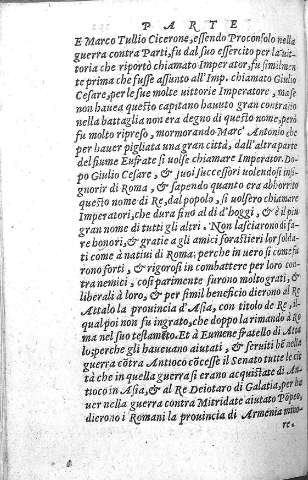 PARTE
E Marco Tullio Cicerone, essendo Proconsolo nella
guerra contra Parti, fu dal suo essercito per la uit-
toria che riportò chiamato Imperator, fu similmen
te prima che fusse assunto all'Imp. chiamato Giulio
Cesare, per le sue molte uittorie Imperatore, ma se
non hauea questo capitano hauuto gran contrasto
nella battaglia non era degno di questo nome, però
fu molto ripreso, mormorando Marc' Antonio che
per hauer pigliata una gran città, dall'altra parte
del fiume Eufrate si uolse chiamare Imperator. Do-
po Giulio Cesare, & suoi successori uolendosi in-
gnorir di Roma, & sapendo quanto era abborrito
questo nome di Re, dal popolo, si uolsero chiamare
Imperatori, che dura fino al dì d'hoggi, & è il più
gran nome di tutti gli altri. Non lasciarono di fa-
re honori, & gratie a gli amici forastieri lor solda-
ti come à natiui di Roma; perche in uero si come fu
rono forti, & rigorosi in combattere per loro con-
tra nemici, così parimente furono molto grati, &
liberali à loro, & per simil beneficio dierono al Re
Attalo la prouincia d'Asia, con titolo de Re, il
qual poi non fu ingrato, che dopo la rimando à Ro
ma nel suo testamẽto. Et à Eumene fratello di Atta
lo; perche gli haueuano aiutati, & seruiti bẽ nella
guerra cõtra Antioco cõcesse il Senato tutte le cit
tà che in quella guerra si erano acquistate di An-
tioco in Asia, & al Re Deiotaro di Galatia, per ha
uer nella guerra contra Mitridate aiutato Põpeo,
dierono i Romani la prouincia di Armenia mino-
re.